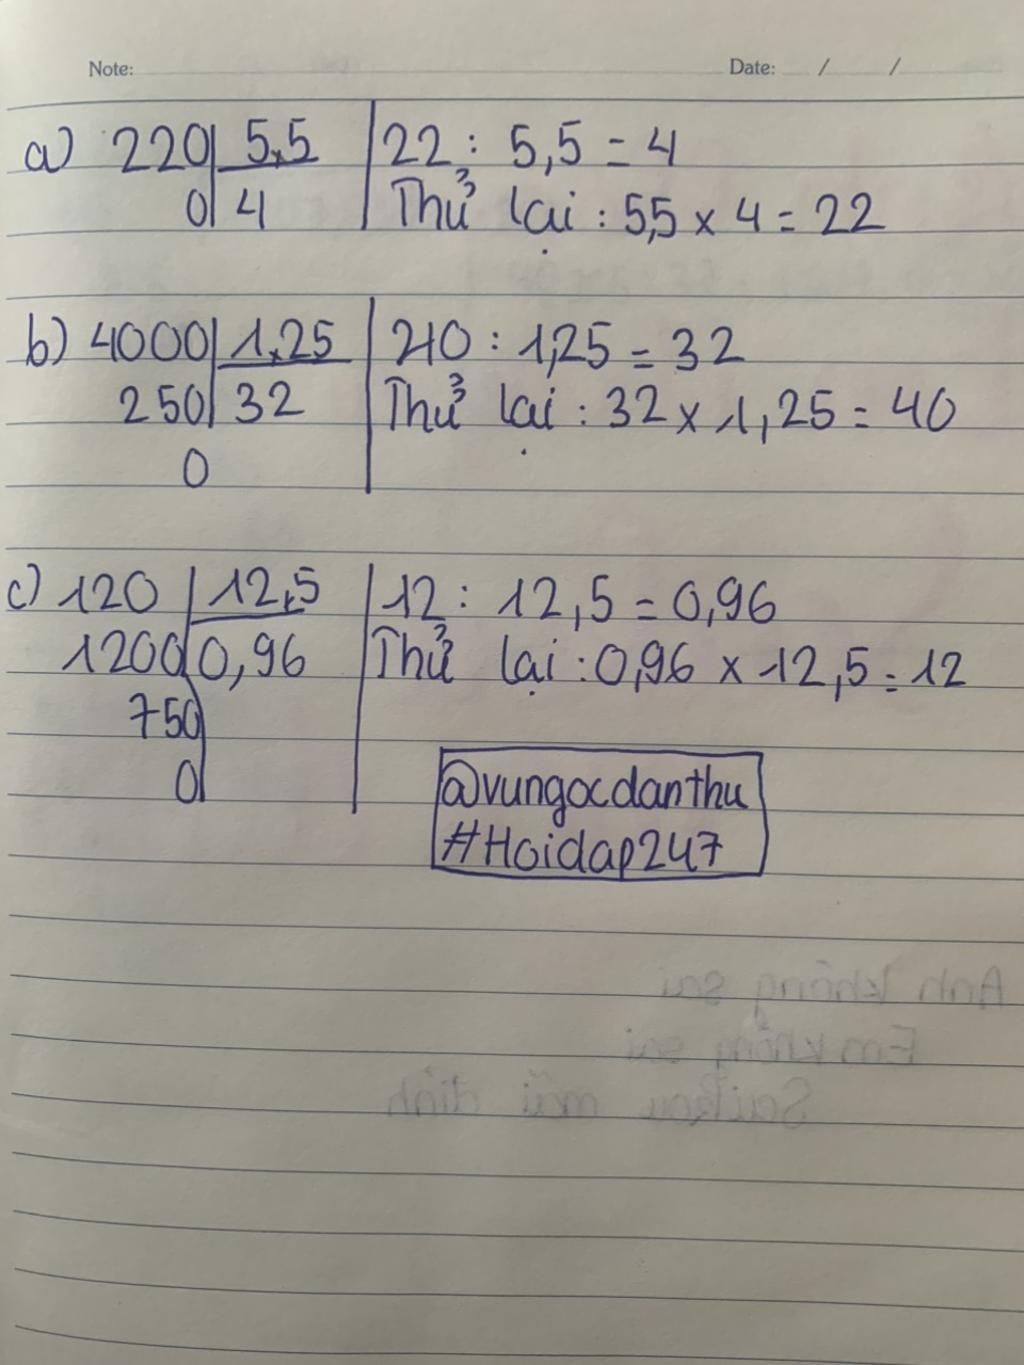 Note: Date: / /
a) 220 5,5 22 : 5,5 = 4
0 4 Thử lại : 5,5 x 4 = 22
b) 4000 1,25 40 : 1,25 = 32
250 32 Thử lại : 32 x 1,25 = 40
0
c) 120 12,5 12 : 12,5 = 0,96
1200 0,96 Thử lại : 0,96 x 12,5 = 12
750
0
@vungocdanthu
#Hoidap247
Anh không sai
Em không sai